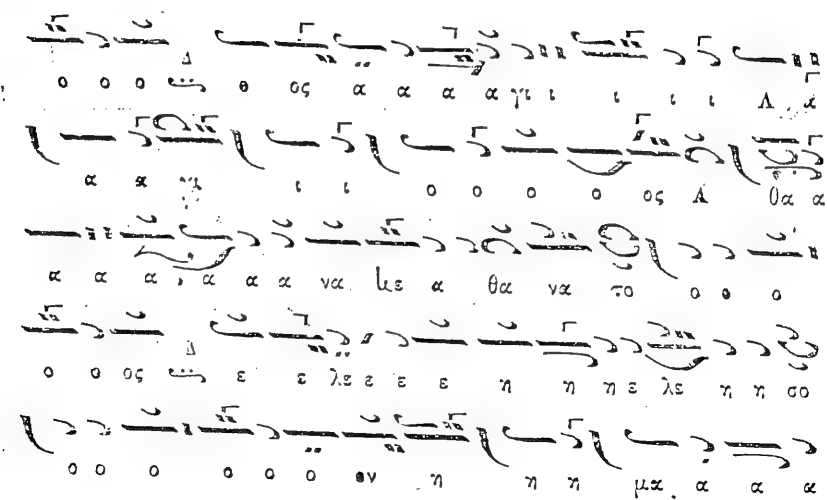 ο ο ο Δ ο ος α α α α γι ι ι ι ι Α α
α α γι ι ι ο ο ο ο ος Α θα α
α α α α α α να με α θα να το ο ο ο
ο ο ος Δ ε ε λε ε ε ε η η η ε λε η η σο
ο ο ο ο ο ο ον η η η μα α α α